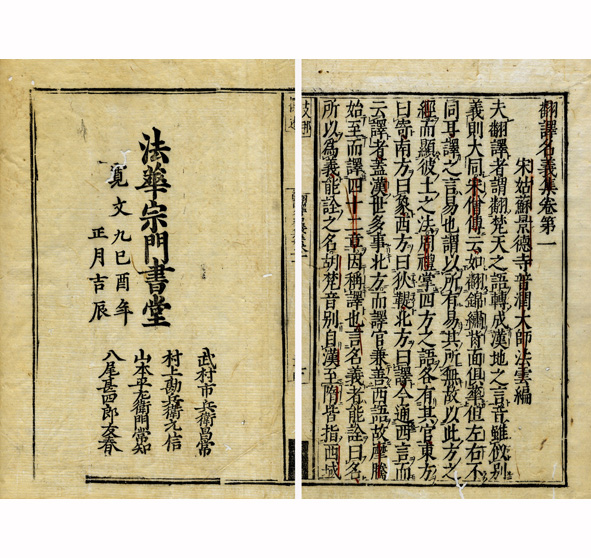 翻譯名義集卷第一
宋姑蘇景德寺普潤大師法雲編
夫翻譯者謂翻梵天之語轉成漢地之言音雖似別
義則大同宋僧傳云如翻錦繡背面俱華但左右不
同耳譯之言易也謂以所有易其所無故以此方之
經而顯彼土之法周禮掌四方之語各有其官東方
曰寄南方曰象西方曰狄鞮北方曰譯今通西言而
云譯者蓋漢世多事北方而譯官兼善西語故摩騰
始至而譯四十二章因稱譯也言名義者能詮曰名
所以為義能詮之名胡梵音別自漢至隋皆指西域
法華宗門書堂
寬文九己酉年
正月吉辰
武村市兵衛昌常
村上勘兵衛元信
山本平左衛門常知
八尾甚四郎友春